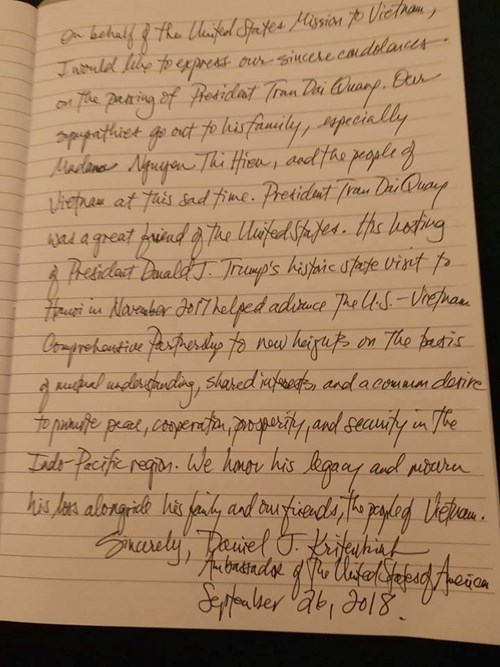 On behalf of the United States Mission to Vietnam,
I would like to express our sincere condolences
on the passing of President Tran Dai Quang. Our
sympathies go out to his family, especially
Madame Nguyen Thi Hien, and the people of
Vietnam at this sad time. President Tran Dai Quang
was a great friend of the United States. His hosting
of President Donald J. Trump's historic state visit to
Hanoi in November 2017 helped advance the U.S.-Vietnam
Comprehensive Partnership to new heights on the basis
of mutual understanding, shared interests, and a common desire
to promote peace, cooperation, prosperity, and security in the
Indo-Pacific region. We honor his legacy and mourn
his loss alongside his family and our friends, the people of Vietnam.
Sincerely, Daniel J. Kritenbrink
Ambassador of the United States of America
September 26, 2018.